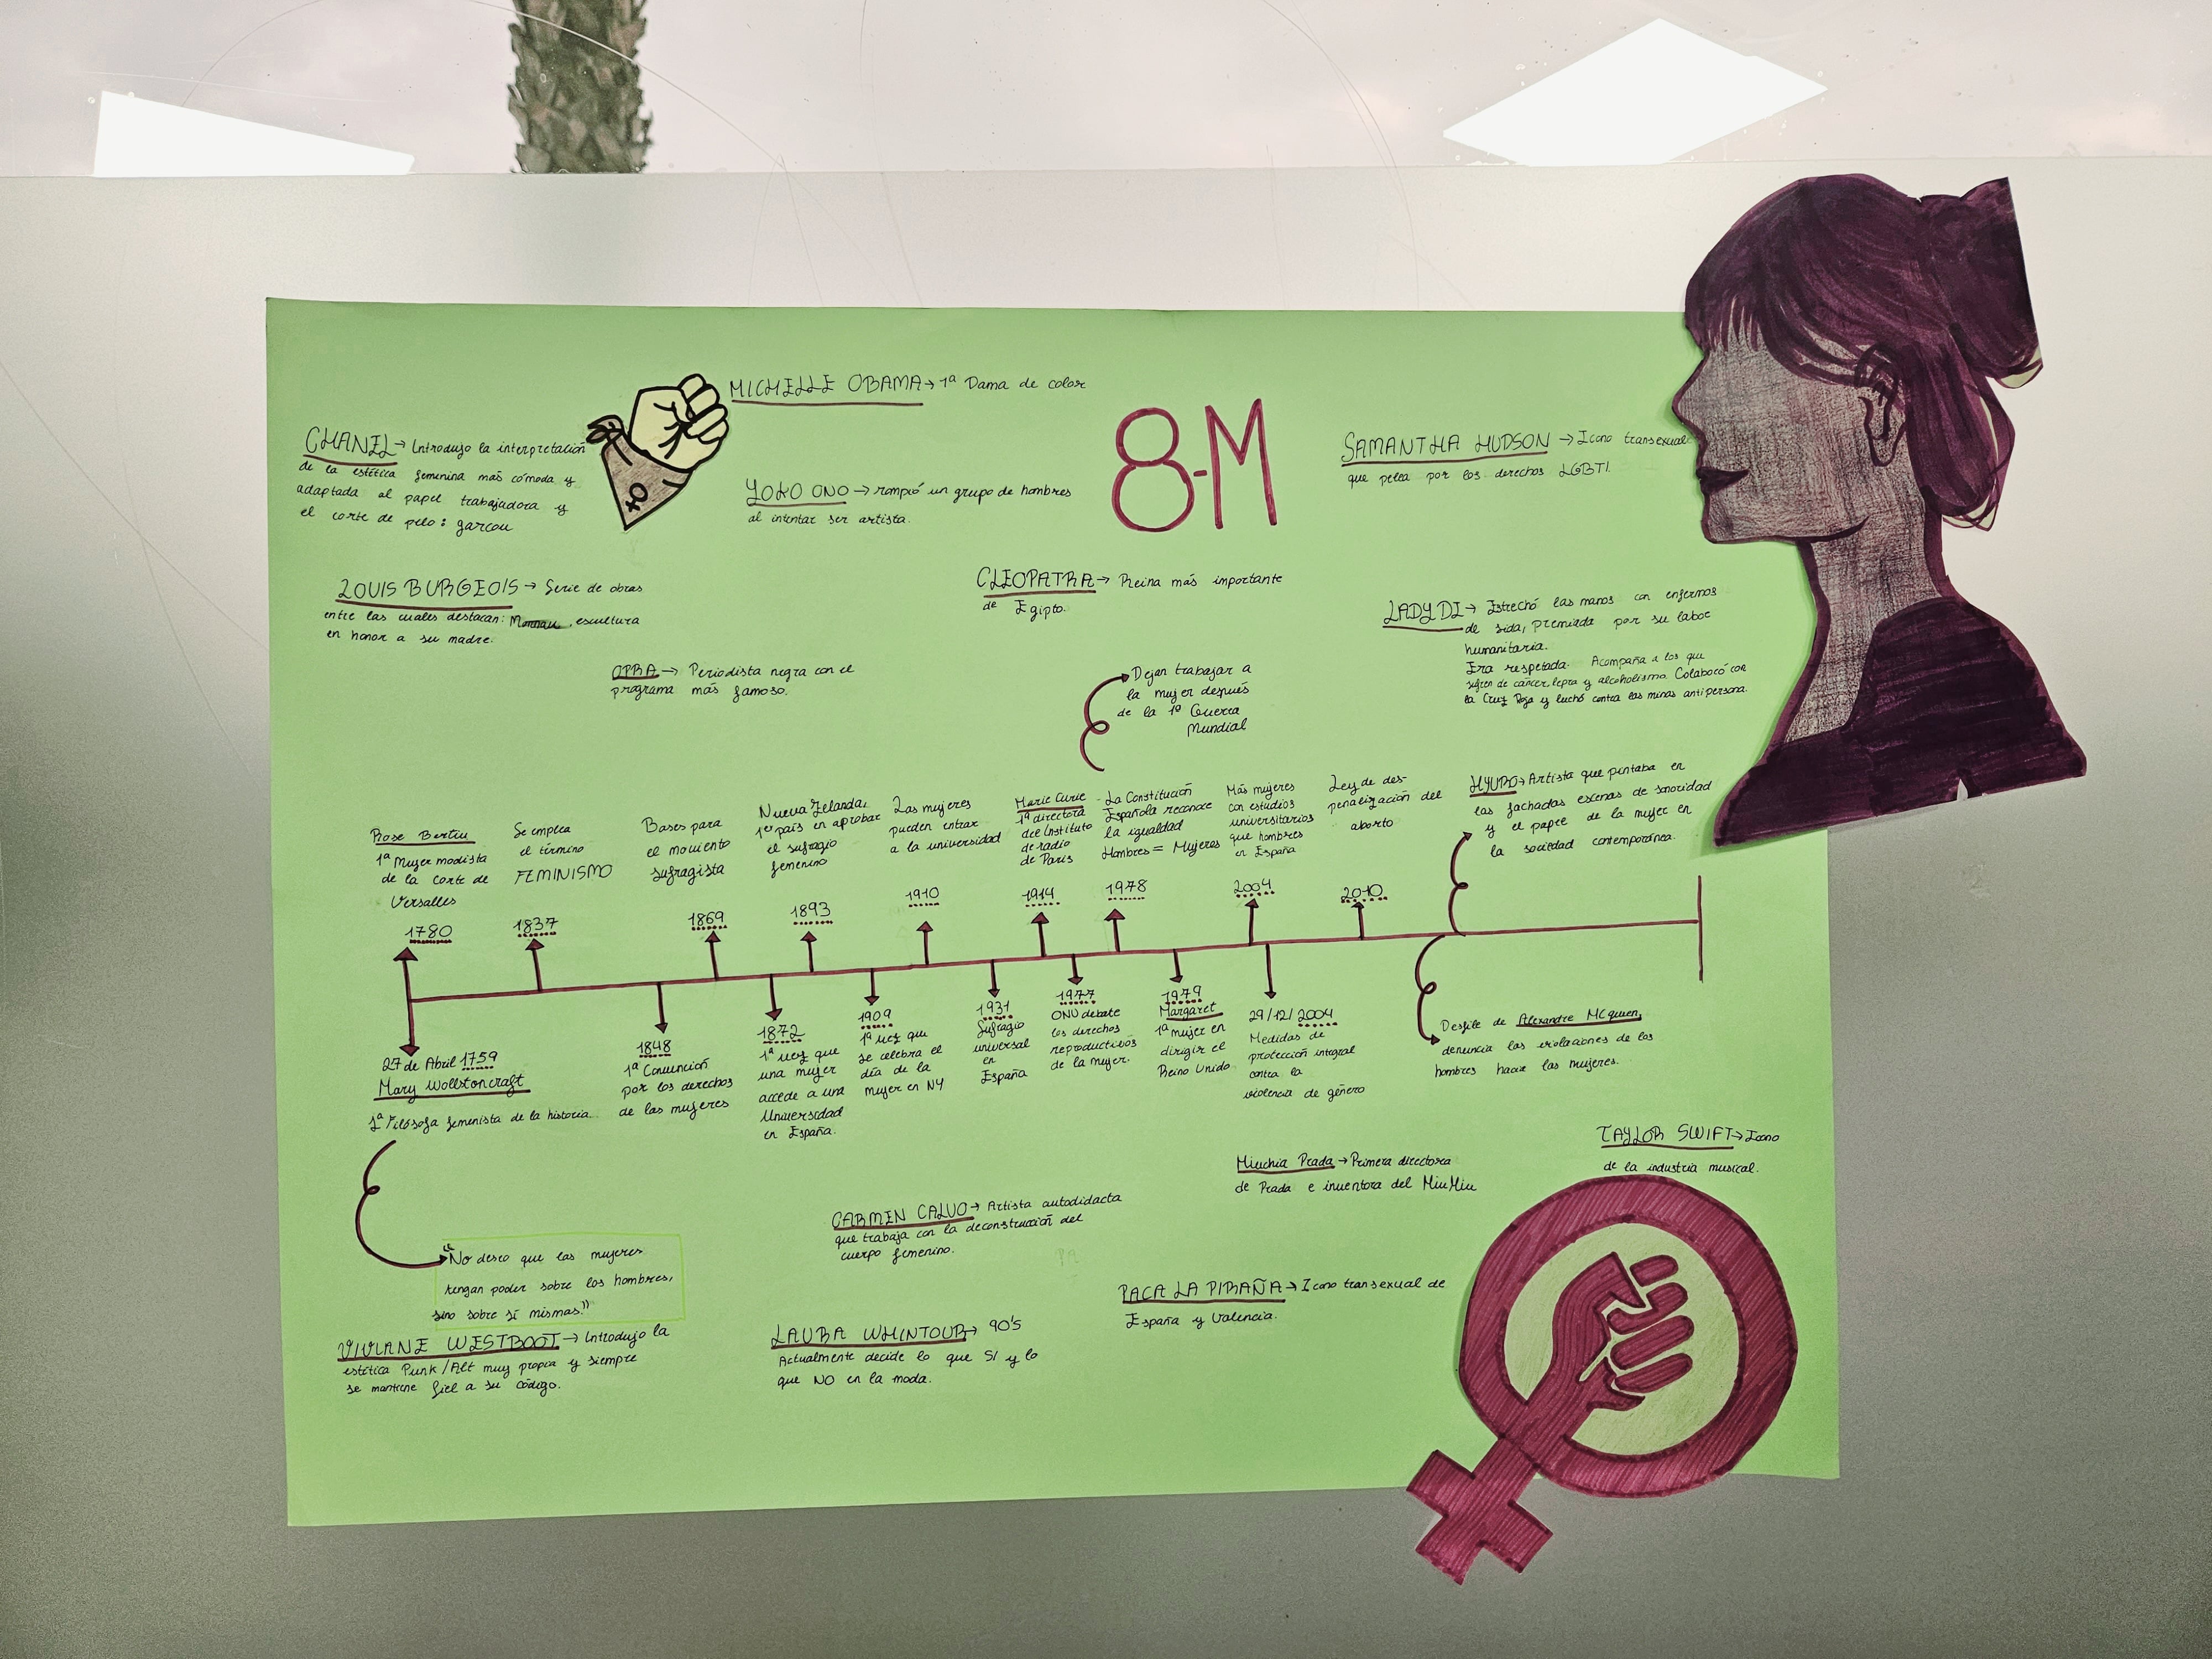 MICHELLE OBAMA → 1ª Dama de color
8-M
CHANEL → Introdujo la interpretación
de la estética femenina más cómoda y
adaptada al papel trabajadora y
el corte de pelo: garcon
YOKO ONO → rompió un grupo de hombres
al intentar ser artista.
SAMANTHA HUDSON → Icono transexual
que pelea por los derechos LGBTI.
LOUIS BURGEOIS → Serie de obras
entre las cuales destacan: , escultura
en honor a su madre.
CLEOPATRA → Reina más importante
de Egipto.
LADY DI → Estrechó las manos con enfermos
de sida, premiada por su labor
humanitaria.
Era respetada. Acompaña a los que
sufren de cáncer, lepra y alcoholismo. Colaboró con
la Cruz Roja y luchó contra las minas antipersona.
OPRA → Periodista negra con el
programa más famoso.
Dejan trabajar a
la mujer después
de la 1ª Guerra
Mundial
Rose Bertin
1ª Mujer modista
de la Corte de
Versalles
1780
Se emplea
el término
FEMINISMO
1837
Bases para
el moviento
sufragista
1869
Nueva Zelanda,
1er país en aprobar
el sufragio
femenino
1893
Las mujeres
pueden entrar
a la universidad
1910
Marie Curie
1ª directora
del Instituto
de radio
de París
1914
- La Constitución
Española reconoce
la igualdad
Hombres = Mujeres
1978
Más mujeres
con estudios
universitarios
que hombres
en España
2004
Ley de des-
penalización del
aborto
2010
HYURO → Artista que pintaba en
las fachadas escenas de sonoridad
y el papel de la mujer en
la sociedad contemporánea.
27 de Abril 1759
Mary Wollstoncraft
1ª Filósofa feminista de la historia.
1848
1ª Convención
por los derechos
de las mujeres
1872
1ª vez que
una mujer
accede a una
Universidad
en España.
1909
1ª vez que
se celebra el
día de la
mujer en NY
1931
Sufragio
universal
en
España
1977
ONU debate
los derechos
reproductivos
de la mujer.
1979
Margaret
1ª mujer en
dirigir el
Reino Unido
29/12/2004
Medidas de
protección integral
contra la
violencia de género
Desfile de Alexandre MCqueen,
denuncia las violaciones de los
hombres hacia las mujeres.
TAYLOR SWIFT → Icono
de la industria musical.
Miuchia Prada → Primera directora
de Prada e inventora del MiuMiu
CARMEN CALVO → Artista autodidacta
que trabaja con la deconstrucción del
cuerpo femenino.
"No deseo que las mujeres
tengan poder sobre los hombres,
sino sobre sí mismas."
PACA LA PIRAÑA → Icono transexual de
España y Valencia.
VIVIANE WESTBOOT → Introdujo la
estética Punk/Alt muy propia y siempre
se mantiene fiel a su código.
LAURA WHINTOUR → 90'S
Actualmente decide lo que SI y lo
que NO en la moda.